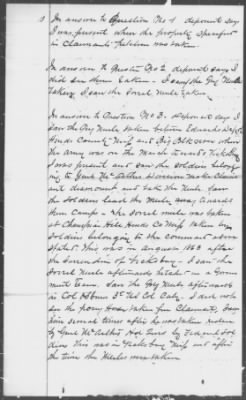 In answer to Question No 1 deponent says
I was present when the property specified
in Claimants petition was taken
In answer to Question No 2 deponent says I
did see them taken - I saw the Grey Mule
taken, I saw the Sorrel Mule taken
In answer to Question No 3. deponent says I
Saw the Grey Mule taken before Edwards Depot
Hinds County Miss. at Big Black when
the army was on the March towards Vicksburg
I was present and saw the Soldiers belong-
ing to Genl McArthur Division make Claim-
ant dismount and take the Mule. Saw
the Soldiers lead the Mule away towards
their Camps - The Sorrel Mule was taken
at Champion Hill Hinds Co Miss taken by
Soldiers belonging to the command above
stated. This was in August 1863 after
the Surrender of Vicksburg - I saw the
Sorrel Mule afterwards hitched in a Govern-
ment Team. Saw the Grey Mule afterwards
in Col Osburn 3d Col Cav. I did not
see the pony Horse taken from Claimant, I saw
him several times after he was taken
by Genl McArthur Hd Qurs by
this was in Vicksburg Miss just after
the time the Mules were taken